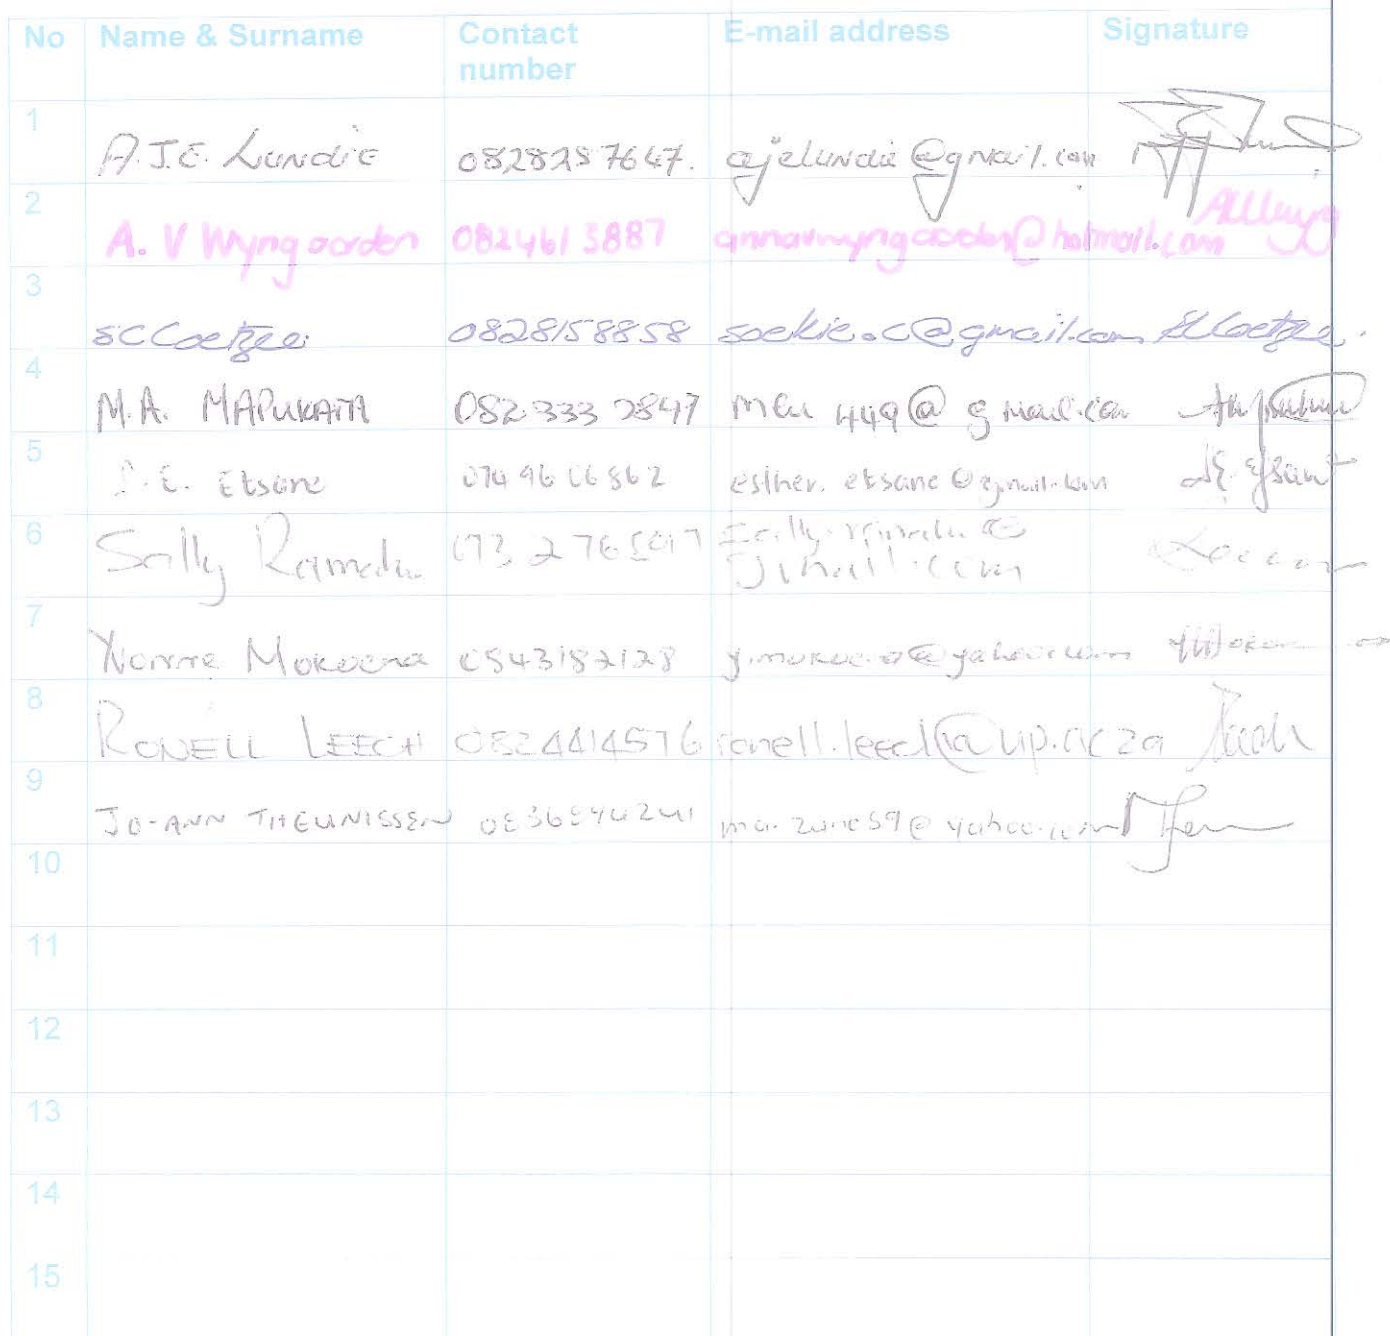 No Name & Surname Contact number E-mail address Signature
1 A.J.E. Lundie 0828287647. ajelundie@gmail.com
2 A. V Wyngaarden 0824613887 annavwyngaarden@hotmail.com
3 SC Coetzee 0828158858 soekie.c@gmail.com SC Coetzee.
4 M.A. MAPUKATA 082 333 2847 449@gmail.com
5 E. Etsane 074 96 06862 esther.etsane@gmail.com
6 Sally
gmail.com
7 Yvonne Mokoena 0843182128 y.mokoena@yahoo.com
8 RONELL LEECH 0824414576 ronell.leech@up.ac.za
9 JO-ANN THEUNISSEN
10
11
12
13
14
15